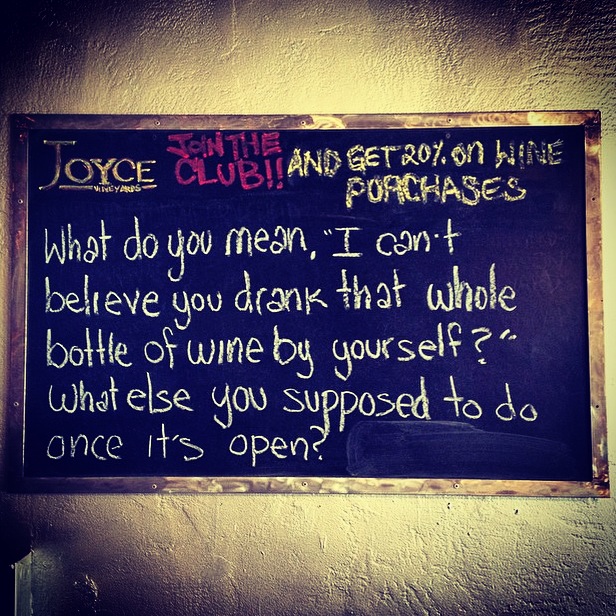 JOYCE
VINEYARDS
JOIN THE
CLUB!!
AND GET 20% ON WINE
PORCHASES
What do you mean, "I can't
believe you drank that whole
bottle of wine by yourself?"
What else you supposed to do
once it's open?